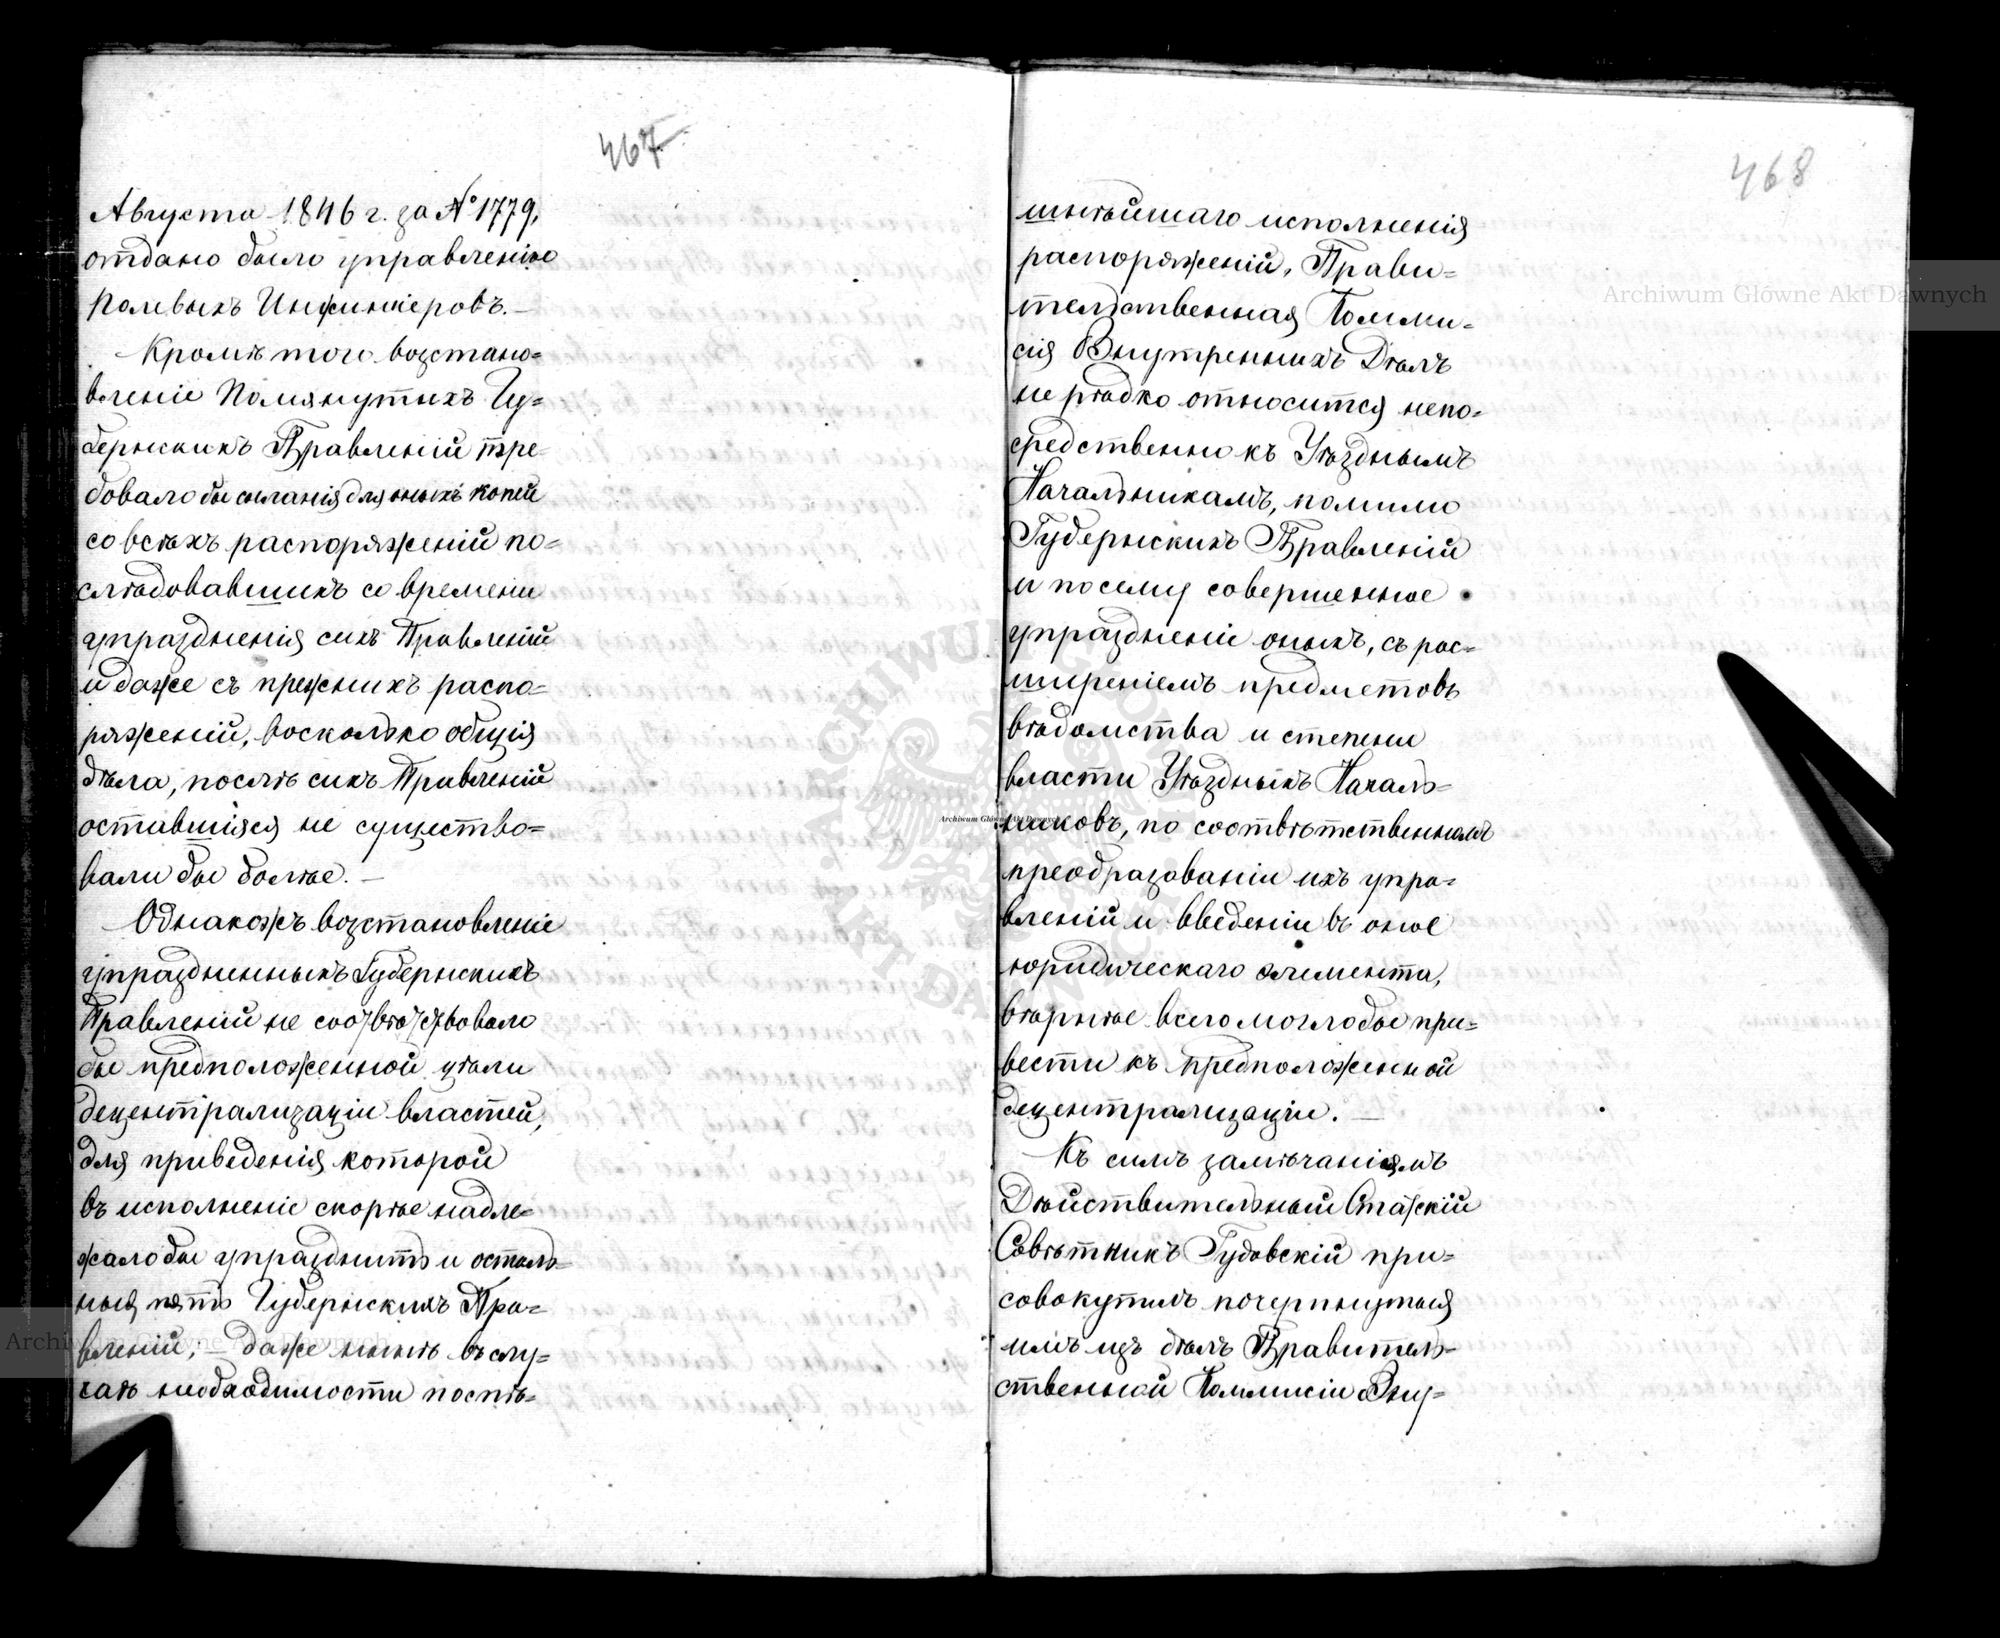 467
Августа 1846 г. за № 1779,
отдано было управленію
Полевыхъ Инжинiеровъ. —
Кромѣ того возстано=
вленіе Помянутыхъ Гу=
бернскихъ Правленій тре=
бовало бы сыланія для оныхъ копей
со всѣхъ распоряженій по=
слѣдовавшихъ со времени
упраздненія сихъ Правленій
и даже съ прежнихъ распо=
ряженій, восколько общія
дѣла, послѣ сихъ Правленій
оставшіяся не существо=
вали бы болѣе. —
Однакожъ возстановленіе
упраздненныхъ Губернскихъ
Правленій не соотвѣтствовало
бы предположенной цѣли
децентрализаціи властей,
для приведенія которой
въ исполненіе скорѣе надле=
жало бы упразднить и осталь=
ныя пять Губернскихъ Пра=
вленій; — даже нынѣ въ слу=
чаѣ необходимости поспѣ=
468
шнѣйшаго исполненія
распоряженій, Прави=
тельственная Коммис=
сія Внутреннихъ Дѣлъ
не рѣдко относится непо=
средственно къ Уѣзднымъ
Начальникамъ, помимо
Губернскихъ Правленій
и посему совершенное
упраздненіе оныхъ, съ рас=
ширеніемъ предметовъ
вѣдомства и степени
власти Уѣздныхъ Началь=
никовъ, по соотвѣтственномъ
преобразованіи ихъ упра=
вленій и введеніи въ оное
юридическаго елемента,
вѣрнѣе всего могло бы при=
вести къ предположенной
децентрализаціи. —
Къ симъ замѣчаніямъ
Дѣйствительный Статскій
Совѣтникъ Гудовскій при=
совокупилъ почерпнутыя
имъ изъ дѣлъ Правитель=
ственной Коммисіи Вну=
Archiwum Główne Akt Dawnych
Archiwum Główne Akt Dawnych
Archiwum Główne Akt Dawnych